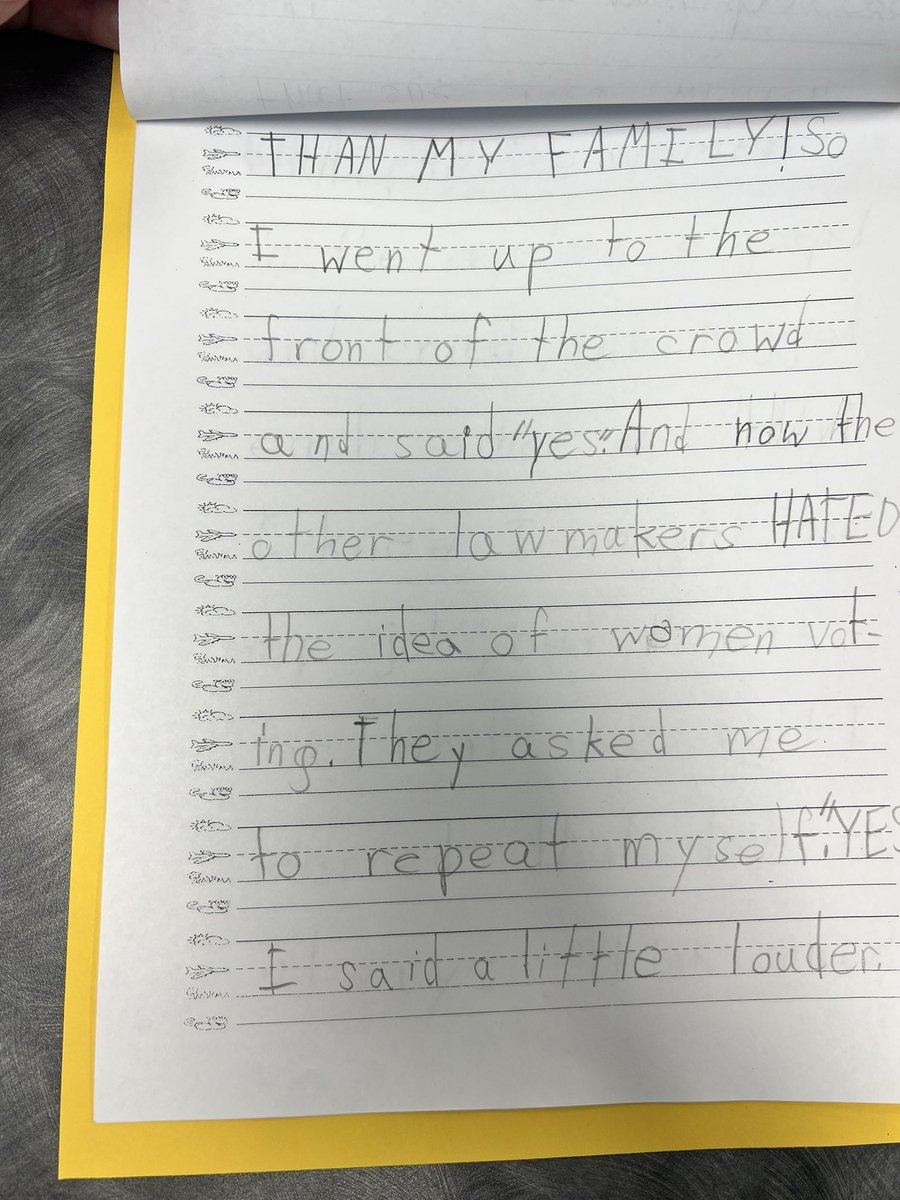 THAN MY FAMILY! So
I went up to the
front of the crowd
and said "yes". And now the
other lawmakers HATED
the idea of women vot-
ing. They asked me
to repeat myself. "YES
I said a little louder.